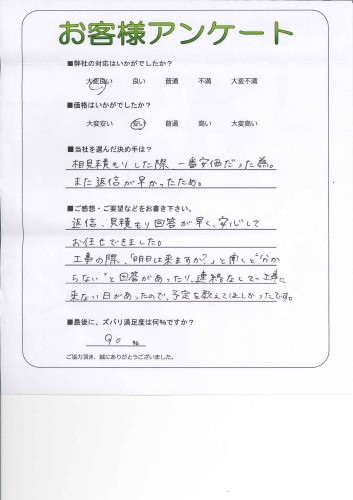 お客様アンケート
■弊社の対応はいかがでしたか?
大変良い 良い 普通 不満 大変不満
■価格はいかがでしたか?
大変安い 安い 普通 高い 大変高い
■当社を選んだ決め手は?
相見積もりした際、一番安価だった為。
また返信が早かったため。
■ご感想・ご要望などをお書き下さい。
返信、見積もり回答が早く、安心して
お任せできました。
工事の際、「明日は来ますか?」と聞くと"分か
らない"と回答があったり、連絡なしで工事に
来ない日があったので、予定を教えてほしかったです。
■最後に、ズバリ満足度は何%ですか?
90 %
ご協力頂き、誠にありがとうございました。